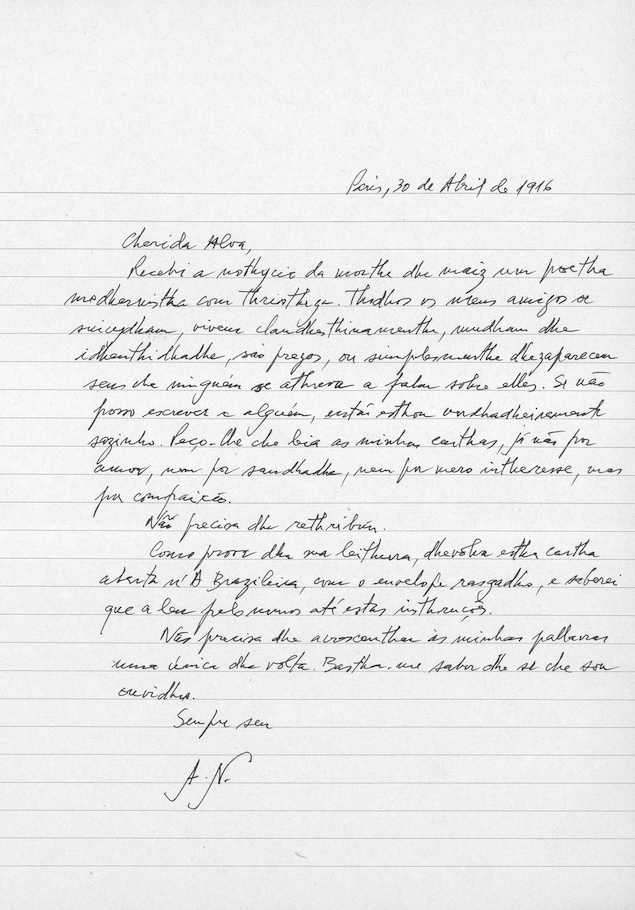 Paris, 30 de Abril de 1916
Cherida Alva,
Recebi a nothycia da morthe dhe maiz um poetha
modhernistha com thristheza. Thodhos os meus amigos se
suicydham, vivem clandhesthinamenthe, mudham dhe
idhenthidhadhe, são prezos, ou simplesmenthe dhezaparecem
sem che ninguém se athreva a falar sobre elles. Si não
posso escrever a alguém, estão esthou verdhadheiramente
sozinho. Peço-lhe che leia as minhas carthas, já não por
amor, nem por saudhadhe, nem por mero intheresse, mas
por compaixão.
Não precisa dhe rethribuir.
Como prova dha sua leithura, dhevolva estha cartha
aberta n'A Brazileira, com o envelope rasgadho, e saberei
que a leu pelo menos até estas insthruções.
Não precisa dhe acrescenthar às minhas pallavras
uma única dhe volta. Bastha-me saber dhe si che sou
ouvidho.
Sempre seu
A. N.